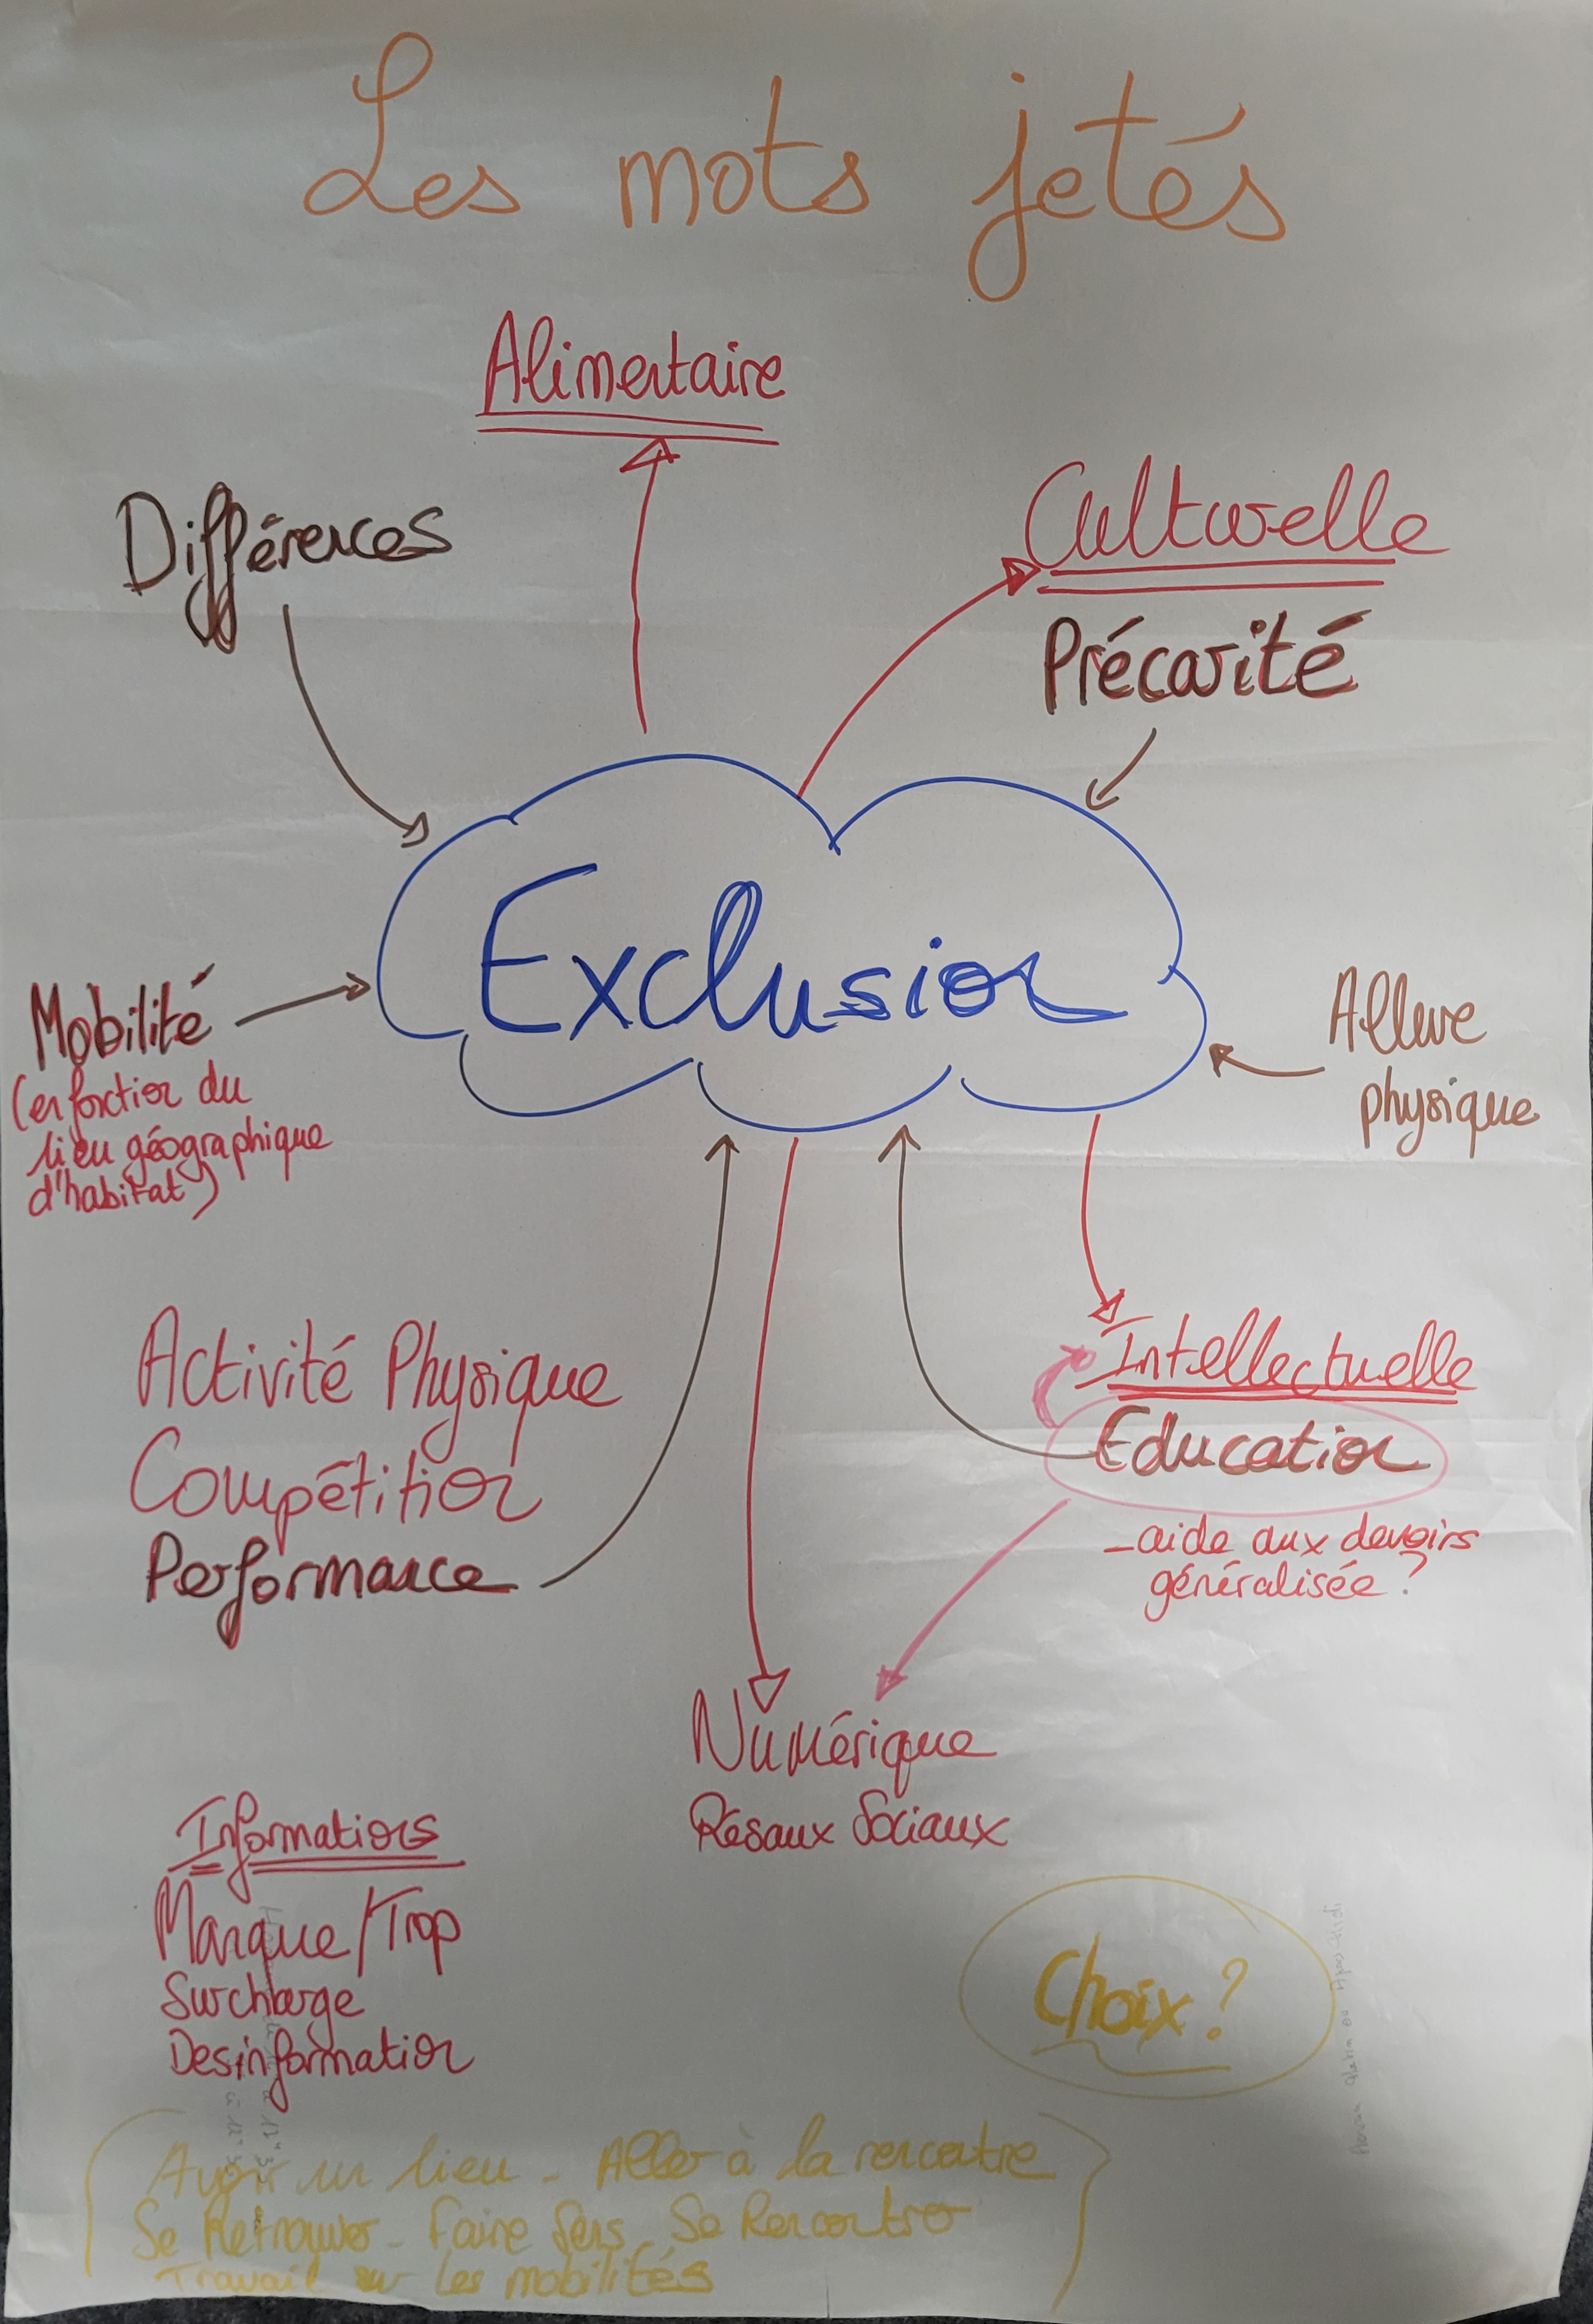 Les mots jetés
Alimentaire
Culturelle
Différences
Précarité
Exclusion
Mobilité
(en fonction du
lieu géographique
d'habitat)
Allure
physique
Activité Physique
Compétition
Performance
Intellectuelle
Education
- aide aux devoirs
généralisée ?
Numérique
Résaux Sociaux
Informations
Manque/Trop
Surcharge
Desinformation
Choix ?
Avoir un lieu - Aller à la rencontre
Se Retrouver - Faire Sens - Se Rencontrer
Travail sur les mobilités